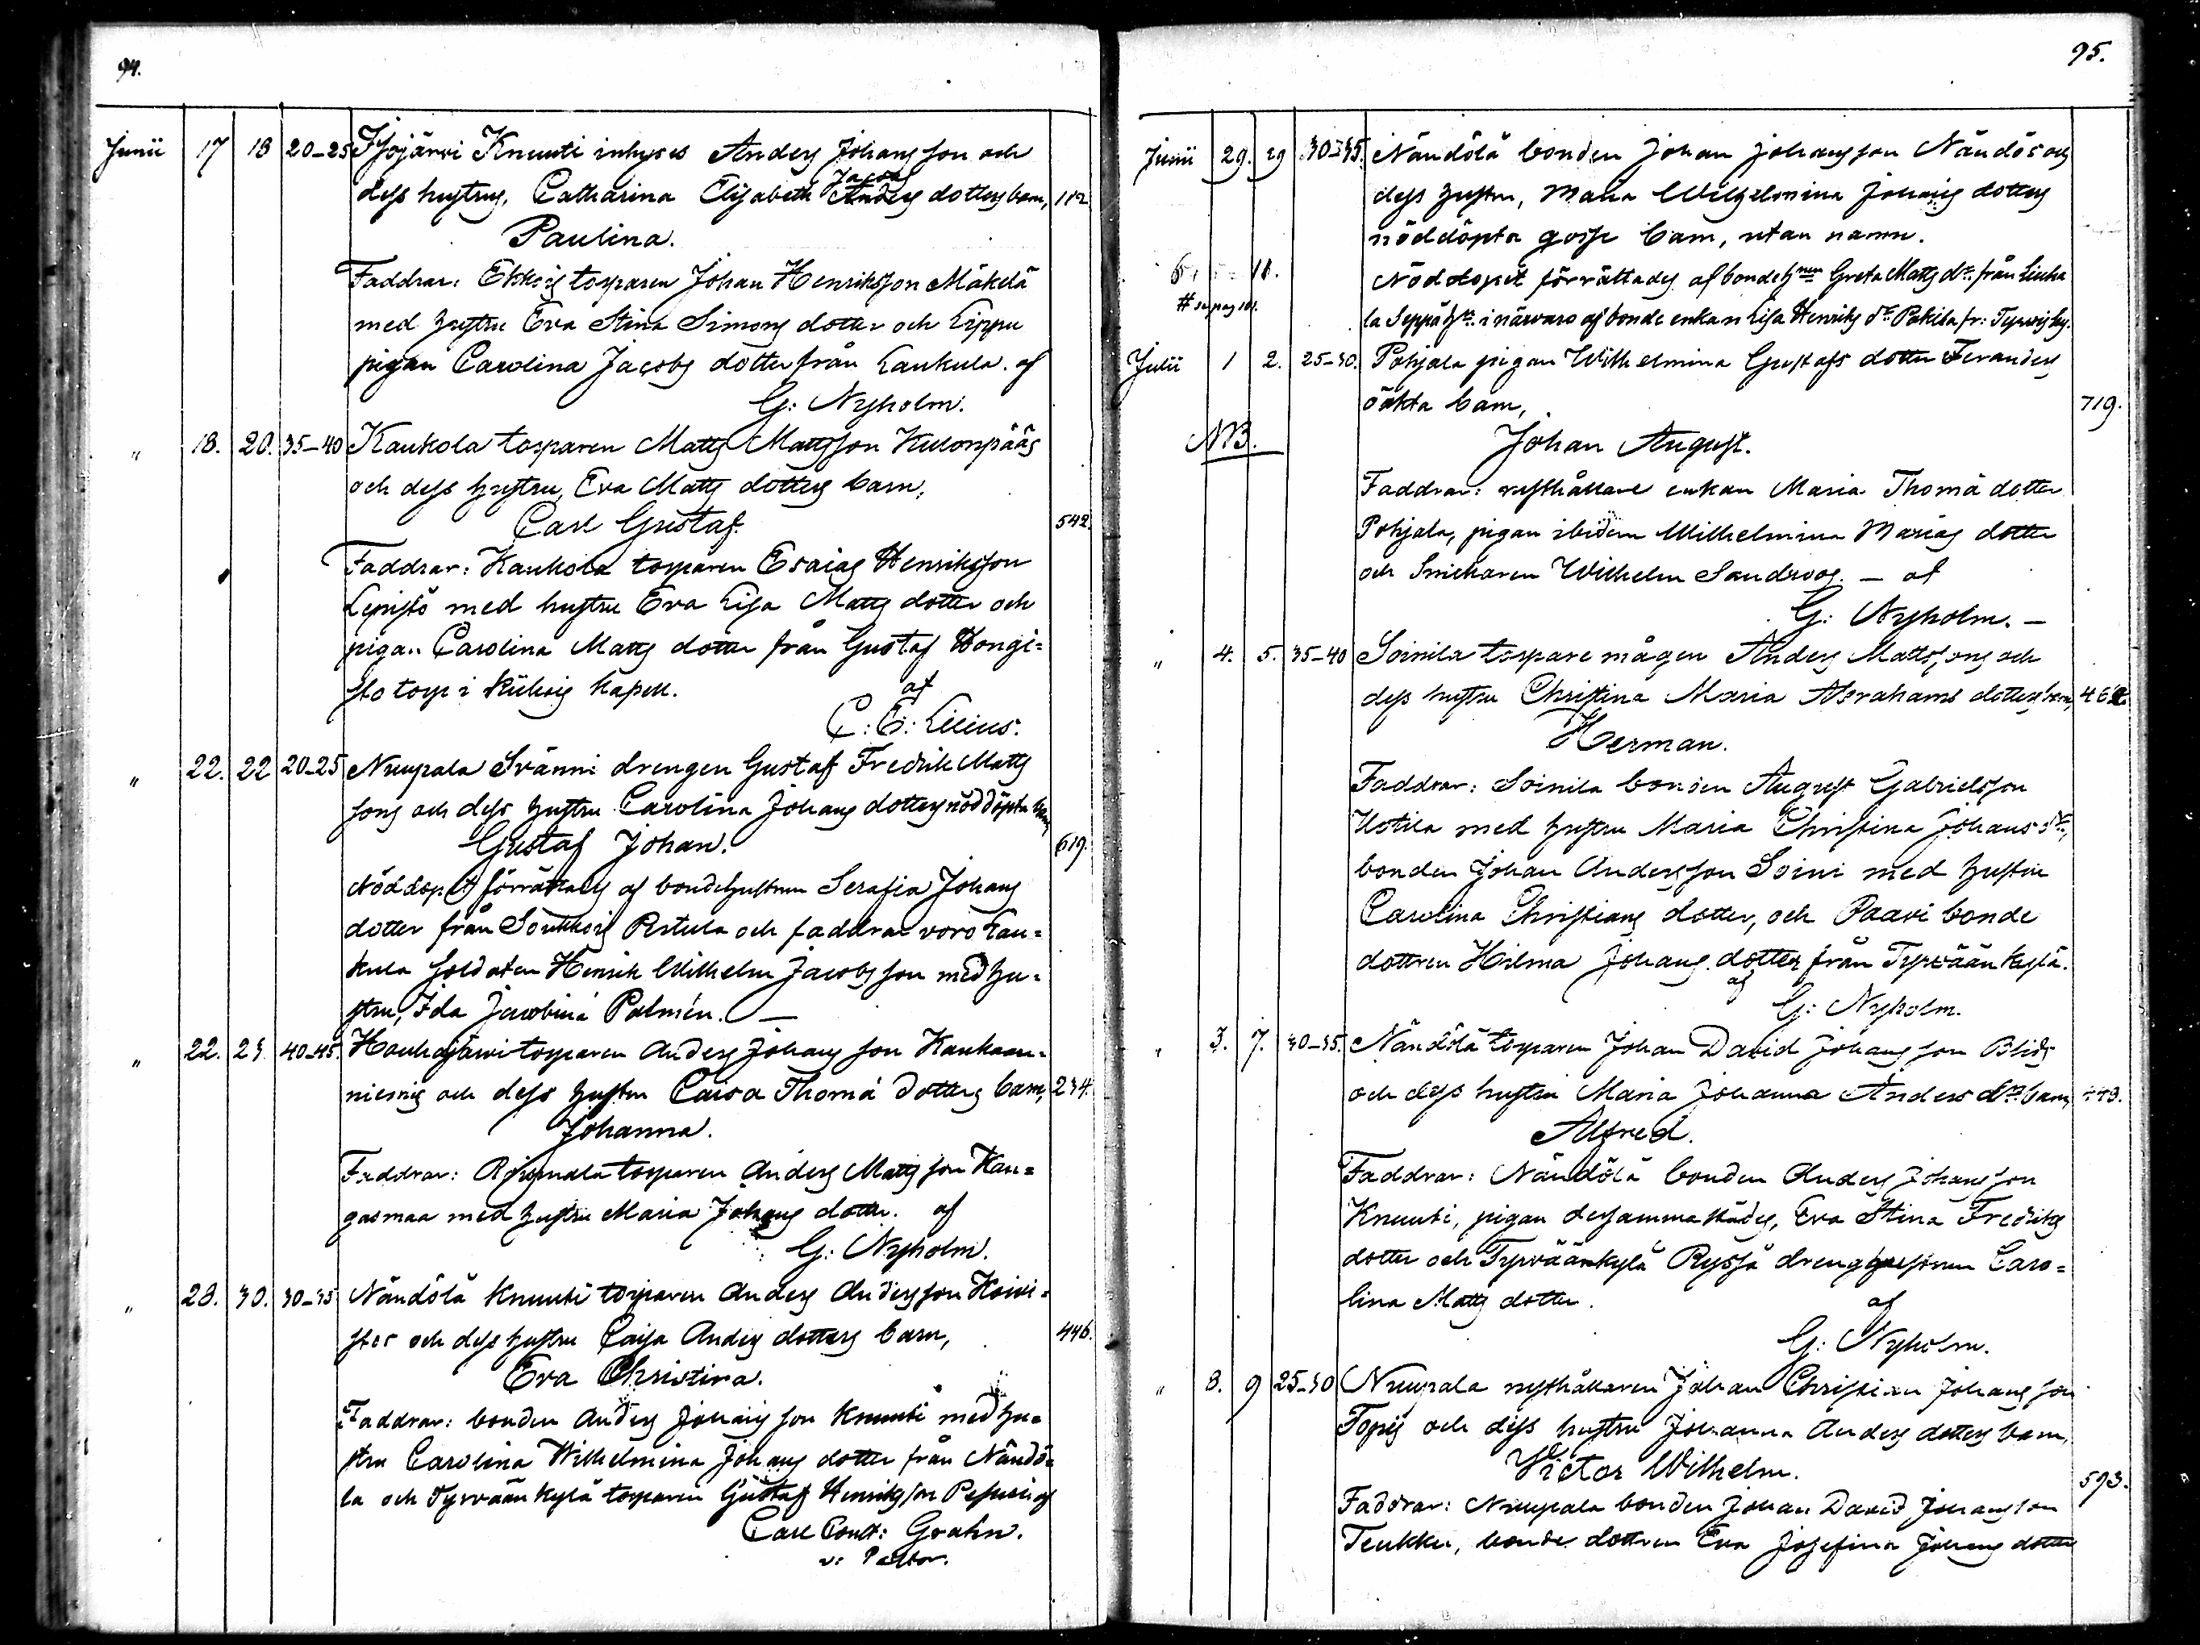 94.
Junii 17 18 20-25 Jfojärvi Knuuti inhyses Anders Johansson och
dess hustrus, Catharina Elisabeth Jacobs Anders dotters barn, 112
Paulina.
Faddrar: torparen Johan Henriksson Mäkelä
med hustru Eva Stina Simons dotter och Lippu
pigan Carolina Jacobs dotter från Laukula. af
G: Nyholm.
" 18. 20. 35-40 Kaukola torparen Matts Mattsson Kulonpääs
och dess hustru, Eva Matts dotters barn,
Carl Gustaf. 542
Faddrar: Kaukola torparen Esaias Henriksson
Lepistö med hustru Eva Lisa Matts dotter och
pigan Carolina Matts dotter från Gustaf Hongi=
sto torp i Kiikois Kapell. af
C: E: Lilius.
" 22. 22 20-25 Nuupala Svänni drengen Gustaf Fredrik Matts
sons och dess hustru Carolina Johans dotters nöddöpta barn
Gustaf Johan. 619.
Nöddopet förrättades af bondehustrun Serafia Johans
dotter från Soukkois Ristula och faddrar voro Lau=
kula soldaten Henrik Wilhelm Jacobsson med hu=
stru, Ida Jacobina Palmén. —
" 22. 23. 40-45. torparen Anders Johansson Kankaan=
niemis och dess hustru Caisa Thomä dotters barn, 234.
Johanna.
Faddrar: torparen Anders Mattsson Kan=
gasmaa med hustru Maria Johans dotter. af
G: Nyholm.
" 28. 30. 30-35 Nändölä Knuuti torparen Anders Andersson Koivi=
stos och dess hustru Caisa Anders dotters barn, 446.
Eva Christina.
Faddrar: bonden Anders Johansson Knuuti med hu=
stru Carolina Wilhelmina Johans dotter från Nändö=
la och Tyrväänkylä torparen Gustaf Henriksson af
Carl Grahn.
v: Pastor.
95.
Junii 29. 29 30-35. Nändölä bonden Johan Johansson Nändös och
dess hustru, Maria Wilhelmina Johans dotters
nöddöpta gosse barn, utan namn.
11. Nöddopet förrättades af bondehustrun Greta Matts dr. från
la Seppä i närvaro af bonde enkan Lisa Henriks dr Pakila fr: Tyrvis ky.
Julii 1 2. 25-30. Pohjala pigan Wilhelmina Gustafs dotter Feranders
oäkta barn, 719.
NB. Johan August.
Faddrar: rusthållare enkan Maria Thomä dotter
Pohjala, pigan ibidem Wilhelmina Marias dotter
och Snickaren Wilhelm Sandroos. — af
G: Nyholm. —
" 4. 5. 35-40 Soinila torpare mågen Anders Mattssons och
dess hustru Christina Maria Abrahams dotters barn,
Herman.
Faddrar: Soinila bonden August Gabrielsson
Uotila med hustru Maria Christina Johans dr,
bonden Johan Andersson Soini med hustru
Carolina Christians dotter, och Paavi bonde
dottren Hilma Johans dotter från Tyrväänkylä.
af
G: Nyholm.
" 3. 7. 30-35. Nändölä torparen Johan David Johansson Blids
och dess hustru Maria Johanna Anders dr. barn,
Alfred.
Faddrar: Nändölä bonden Anders Johansson
Knuuti, pigan dersammastädes, Eva Stina Fredriks
dotter och Tyrväänkylä Ryssä drenghustrun Caro=
lina Matts dotter. af
G: Nyholm.
" 8. 9 25-30 Nuupala rusthållaren Johan Christian Johansson
Topis och dess hustru Johanna Anders dotters barn,
Victor Wilhelm. 593.
Faddrar: Nuupala bonden Johan David Johansson
Teukku, bonde dottren Eva Josefina Johans dotter